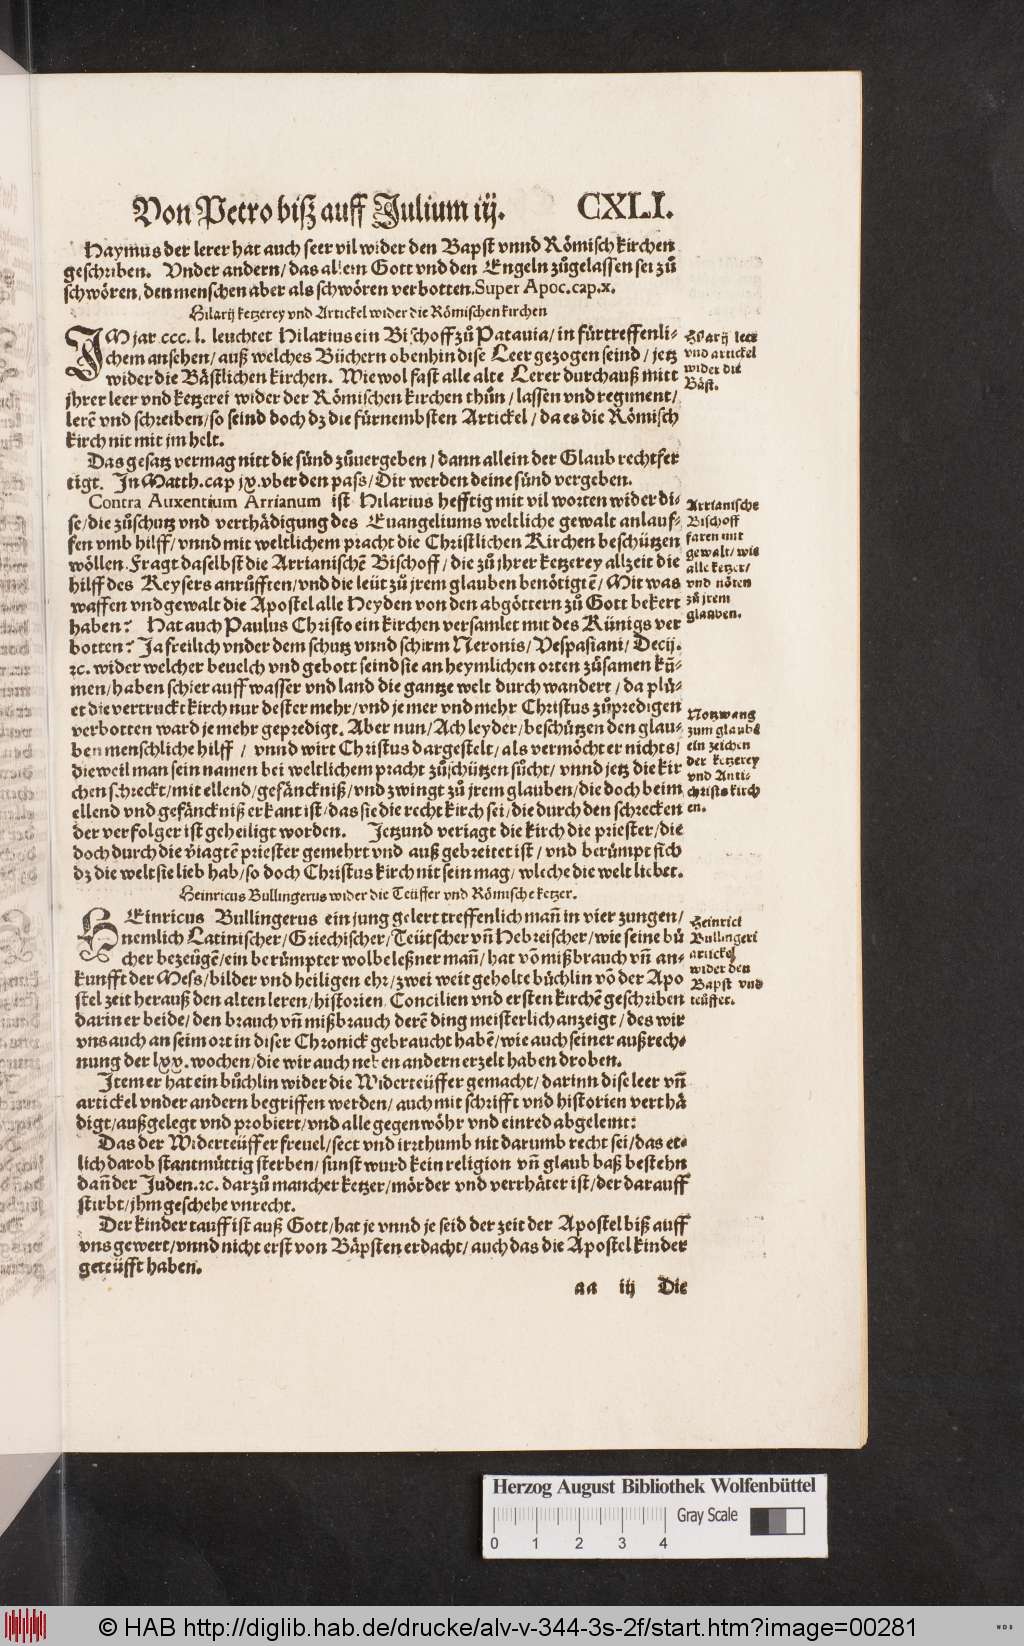 Von Petro biß auff Julium iij. CXLI.
Haymus der lerer hat auch seer vil wider den Bapst vnnd Römisch kirchen
geschriben. Vnder andern / das allein Gott vnd den Engeln zůgelassen sei zů
schwören, den menschen aber als schwören verbotten. Super Apoc. cap. x.
Hilarij ketzerey vnd Artickel wider die Römischen kirchen
IM jar ccc. l. leuchtet Hilarius ein Bischoff zů Patauia / in fürtreffenli-
chem ansehen / auß welches Büchern obenhin dise Leer gezogen seind / jetz
wider die Bästlichen kirchen. Wiewol fast alle alte Lerer durchauß mitt
jhrer leer vnd ketzerei wider der Römischen kirchen thůn / lassen vnd regiment /
lerē vnd schreiben / so seind doch dz die fürnembsten Artickel / da es die Römisch
kirch nit mit im helt.
Hilarij leer
vnd artickel
wider die
Bäst.
Das gesatz vermag nitt die sünd zůuergeben / dann allein der Glaub rechtfer
tigt. In Matth. cap jx. vber den pass / Dir werden deine sünd vergeben.
Contra Auxentium Arrianum ist Hilarius hefftig mit vil worten wider di-
se / die zůschutz vnd verthädigung des Euangeliums weltliche gewalt anlauf-
fen vmb hilff / vnnd mit weltlichem pracht die Christlichen Kirchen beschützen
wöllen. Fragt daselbst die Arrianischē Bischoff / die zů jhrer ketzerey allzeit die
hilff des Keysers anrůfften / vnd die leüt zů jrem glauben benötigtē / Mit was
waffen vnd gewalt die Apostel alle Heyden von den abgöttern zů Gott bekert
haben? Hat auch Paulus Christo ein kirchen versamlet mit des Künigs ver
botten? Ja freilich vnder dem schutz vnnd schirm Neronis / Vespasiani / Decij.
ꝛc. wider welcher beuelch vnd gebott seind sie an heymlichen orten zůsamen kū-
men / haben schier auff wasser vnd land die gantze welt durch wandert / da plů-
et die vertruckt kirch nur dester mehr / vnd je mer vnd mehr Christus zůpredigen
verbotten ward je mehr gepredigt. Aber nun / Ach leyder / beschützen den glau-
ben menschliche hilff / vnnd wirt Christus dargestelt / als vermöcht er nichts /
dieweil man sein namen bei weltlichem pracht zůschützen sůcht / vnnd jetz die kir
chen schreckt / mit ellend / gefänckniß / vnd zwingt zů jrem glauben / die doch beim
ellend vnd gefänckniß erkant ist / das sie die recht kirch sei / die durch den schrecken
der verfolger ist geheiligt worden. Jetzund veriagt die kirch die priester / die
doch durch die v̈iagtē priester gemehrt vnd auß gebreitet ist / vnd berümpt sich
dz die welt sie lieb hab / so doch Christus kirch nit sein mag / wleche die welt liebet.
Arrianische
Bischoff
faren mit
gewalt / wie
alle ketzer /
vnd nöten
zů jrem
glauben.
Notzwang
zum glaubē
ein zeichen
der ketzerey
vnd Anti-
christs kirch
en.
Heinricus Bullingerus wider die Teüffer vnd Römische ketzer.
HEinricus Bullingerus ein jung gelert treffenlich mañ in vier zungen /
nemlich Latinischer / Griechischer / Teütscher vñ Hebreischer / wie seine bů
cher bezeügē / ein berümpter wolbeleßner mañ / hat vō mißbrauch vñ an-
kunfft der Mess / bilder vnd heiligen ehr / zwei weit geholte büchlin vō der Apo
stel zeit herauß den alten leren / historien, Concilien vnd ersten kirchē geschriben
darin er beide / den brauch vñ mißbrauch derē ding meisterlich anzeigt / des wir
vns auch an seim ort in diser Chronick gebraucht habē / wie auch seiner außrech-
nung der lxx. wochen / die wir auch neben andern erzelt haben droben.
Heinrici
Bullingeri
artickel
wider den
Bapst vnd
teüffer.
Item er hat ein bůchlin wider die Widerteüffer gemacht / darinn dise leer vñ
artickel vnder andern begriffen werden / auch mit schrifft vnd historien verthä
digt / außgelegt vnd probiert / vnd alle gegenwöhr vnd einred abgelemt:
Das der Widerteüffer freuel / sect vnd irrthumb nit darumb recht sei / das et-
lich darob stantmüttig sterben / sunst wurd kein religion vñ glaub baß bestehn
dañ der Juden. ꝛc. darzů mancher ketzer / mörder vnd verrhäter ist / der darauff
stirbt / jhm geschehe vnrecht.
Der kinder tauff ist auß Gott / hat je vnnd je seid der zeit der Apostel biß auff
vns gewert / vnnd nicht erst von Bäpsten erdacht / auch das die Apostel kinder
geteüfft haben.
aa iij Die
Herzog August Bibliothek Wolfenbüttel
Gray Scale
0 1 2 3 4
© HAB http://diglib.hab.de/drucke/alv-v-344-3s-2f/start.htm?image=00281